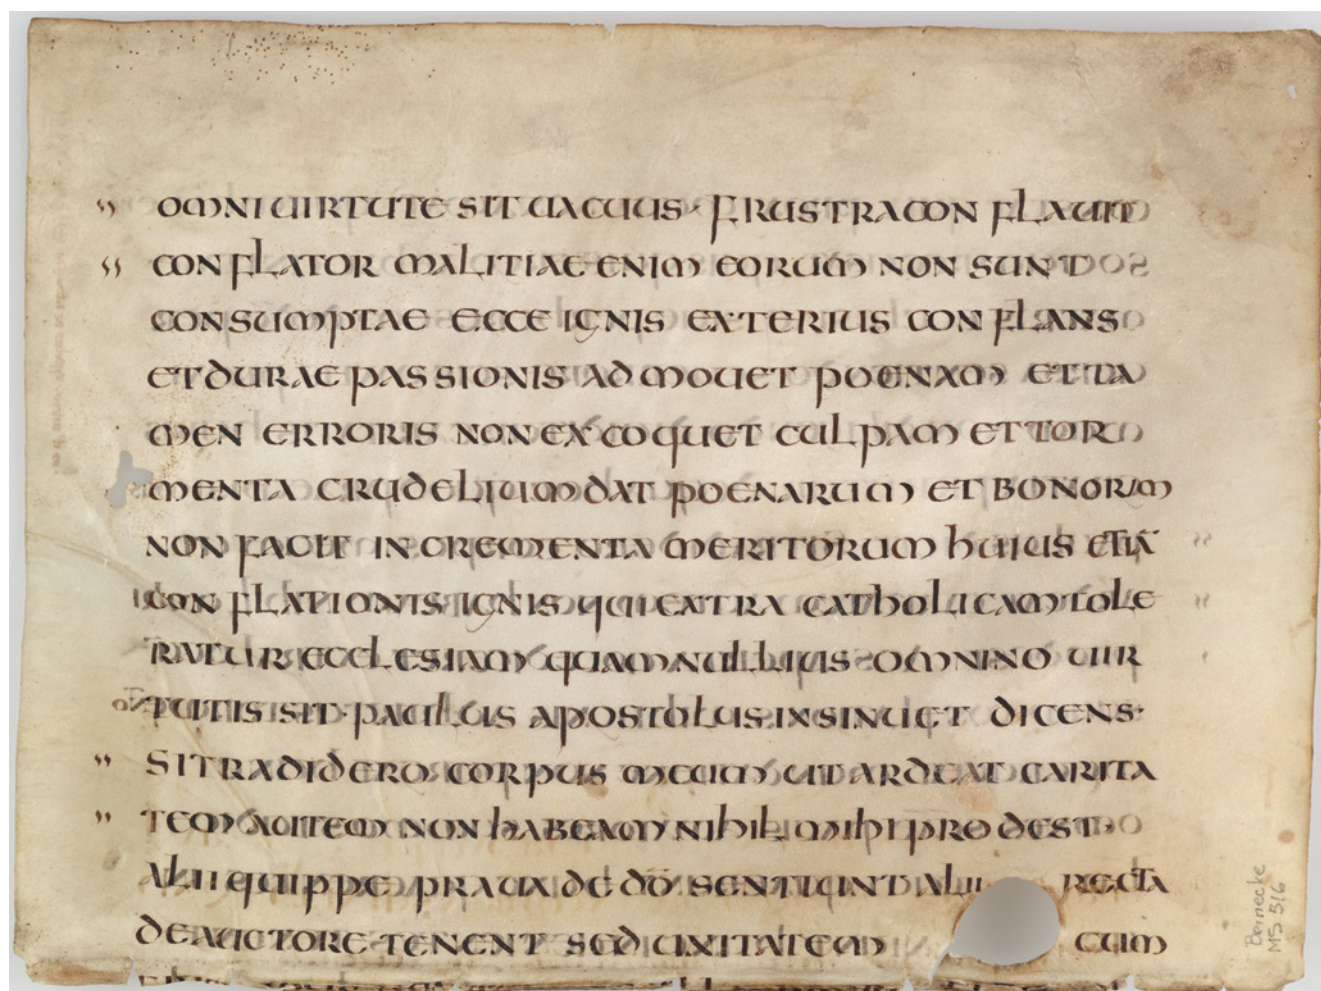 " OMNI UIRTUTE SIT UACUUS· FRUSTRA CONFLAUIT
" CONFLATOR MALITIAE ENIM EORUM NON SUNT
CONSUMPTAE ECCE IGNIS EXTERIUS CONFLANS
ET DURAE PASSIONIS ADMOUET POENAM ET TA
MEN ERRORIS NON EXCOQUET CULPAM ET TOR
MENTA CRUDELIUM DAT POENARUM ET BONORUM
NON FACIT INCREMENTA MERITORUM HUIUS ETIĀ
CONFLATIONIS IGNIS QUI EXTRA CATHOLICAM TOLE
RATUR ECCLESIAM QUAM NULLIUS OMNINO UIR
TUTIS SIT· PAULUS APOSTOLUS INSINUET DICENS·
" SI TRADIDERO CORPUS MEUM UT ARDEAT CARITA
" TEM AUTEM NON HABEAM NIHIL MIHI PRODEST·
ALII QUIPPE PRAUA DE DŌ SENTIUNT ALII RECTA
DE AUCTORE TENENT SED UNITATEM CUM
Beinecke
MS 516